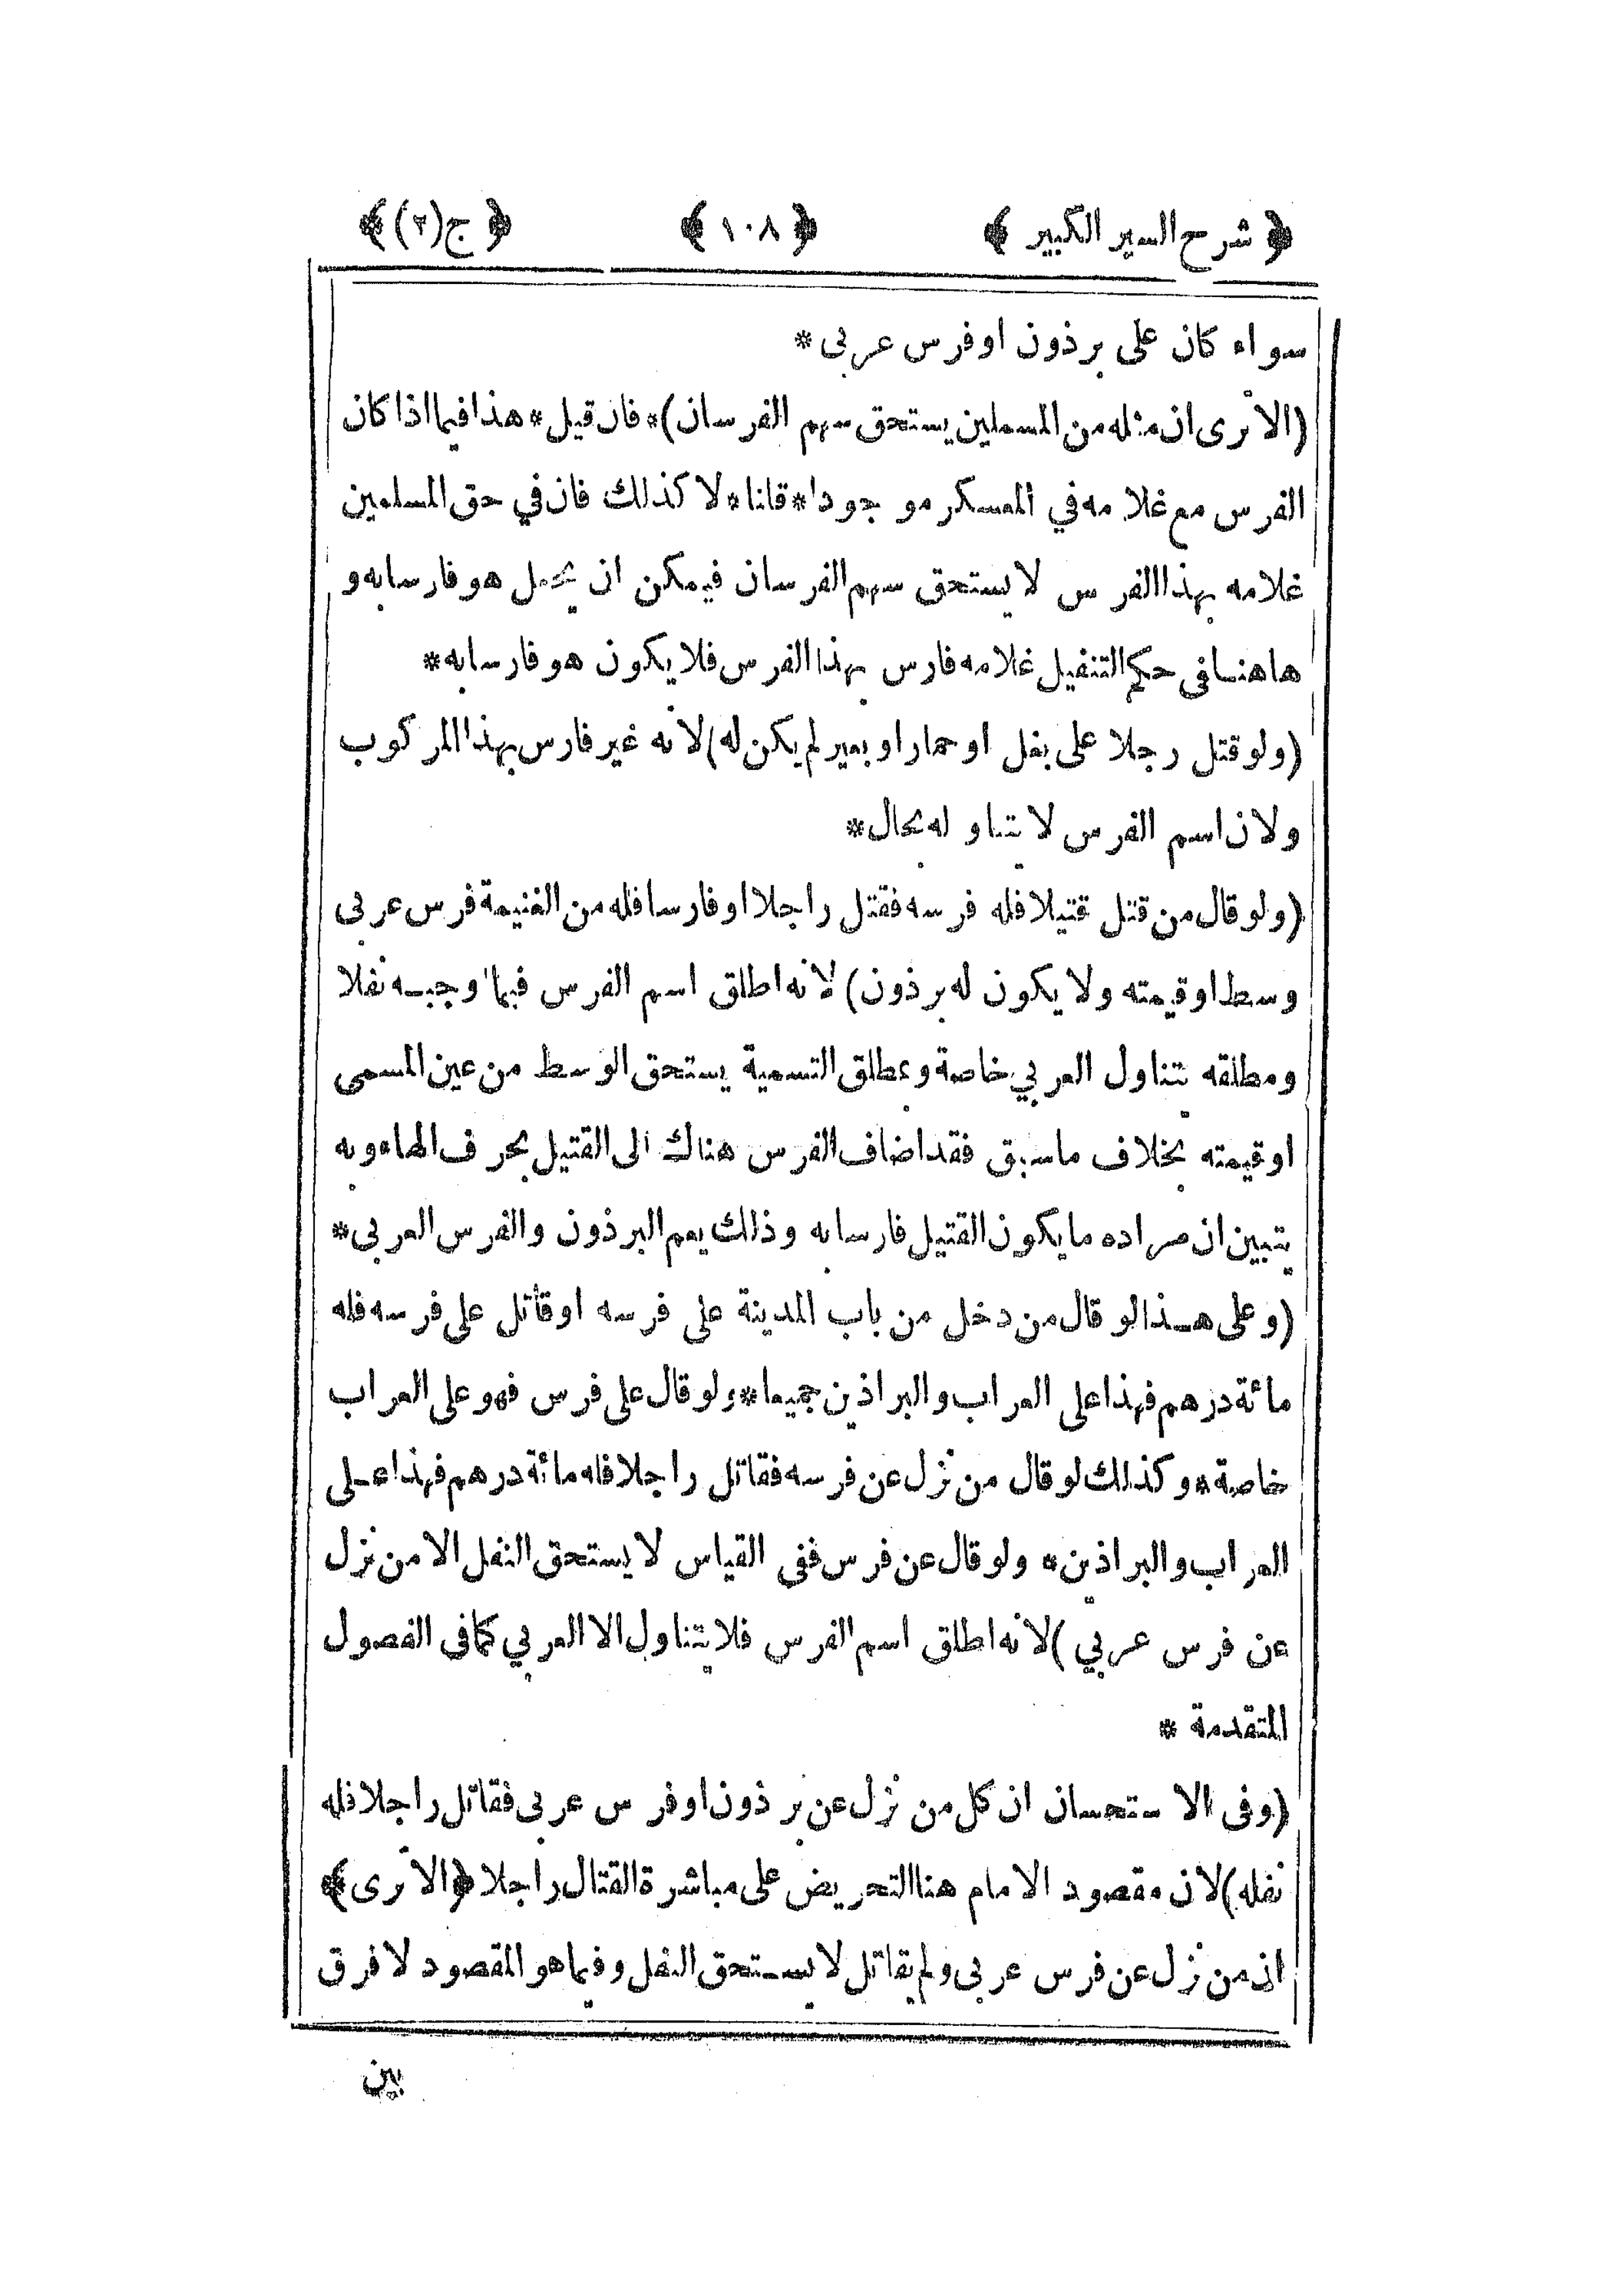 ﴿ شرح السير الكبير ﴾ ﴿ ١٠٨ ﴾ ﴿ ج(٢) ﴾
سواء كان على برذون او فرس عربى *
(الا ترى ان مثله من المسلمين يستحق سهم الفرسان) * فان قيل * هذا فيما اذا كان
الفرس مع غلامه في المعسكر موجودا * قلنا * لا كذلك فان في حق المسلمين
غلامه بهذا الفرس لا يستحق سهم الفرسان فيمكن ان يجعل هو فارسا به و
هاهنا فى حكم التنفيل غلامه فارس بهذا الفرس فلا يكون هو فارسا به *
(ولو قتل رجلا على بغل او حمار او بعير لم يكن له) لانه غير فارس بهذا المركوب
ولان اسم الفرس لا يتناوله بحال *
(ولو قال من قتل قتيلا فله فرسه فقتل راجلا او فارسا فله من الغنيمة فرس عربى
وسط او قيمته ولا يكون له برذون) لانه اطلق اسم الفرس فيما اوجبه نفلا
ومطلقه يتناول العربي خاصة وبمطلق التسمية يستحق الوسط من عين المسمى
او قيمته بخلاف ما سبق فقد اضاف الفرس هناك الى القتيل بحرف الهاء وبه
يتبين ان مراده ما يكون القتيل فارسا به وذلك يعم البرذون والفرس العربى *
(وعلى هذا لو قال من دخل من باب المدينة على فرسه او قاتل على فرسه فله
مائة درهم فهذا على العراب والبراذين جميعا * ولو قال على فرس فهو على العراب
خاصة * وكذلك لو قال من نزل عن فرسه فقاتل راجلا فله مائة درهم فهذا على
العراب والبراذين * ولو قال عن فرس ففى القياس لا يستحق النفل الا من نزل
عن فرس عربي) لانه اطلق اسم الفرس فلا يتناول الا العربي كما فى الفصول
المتقدمة *
(وفى الاستحسان ان كل من نزل عن برذون او فرس عربى فقاتل راجلا فله
نفله) لان مقصود الامام هنا التحريض على مباشرة القتال راجلا ﴿الا ترى﴾
ان من نزل عن فرس عربى ولم يقاتل لا يستحق النفل وفيما هو المقصود لا فرق
بين